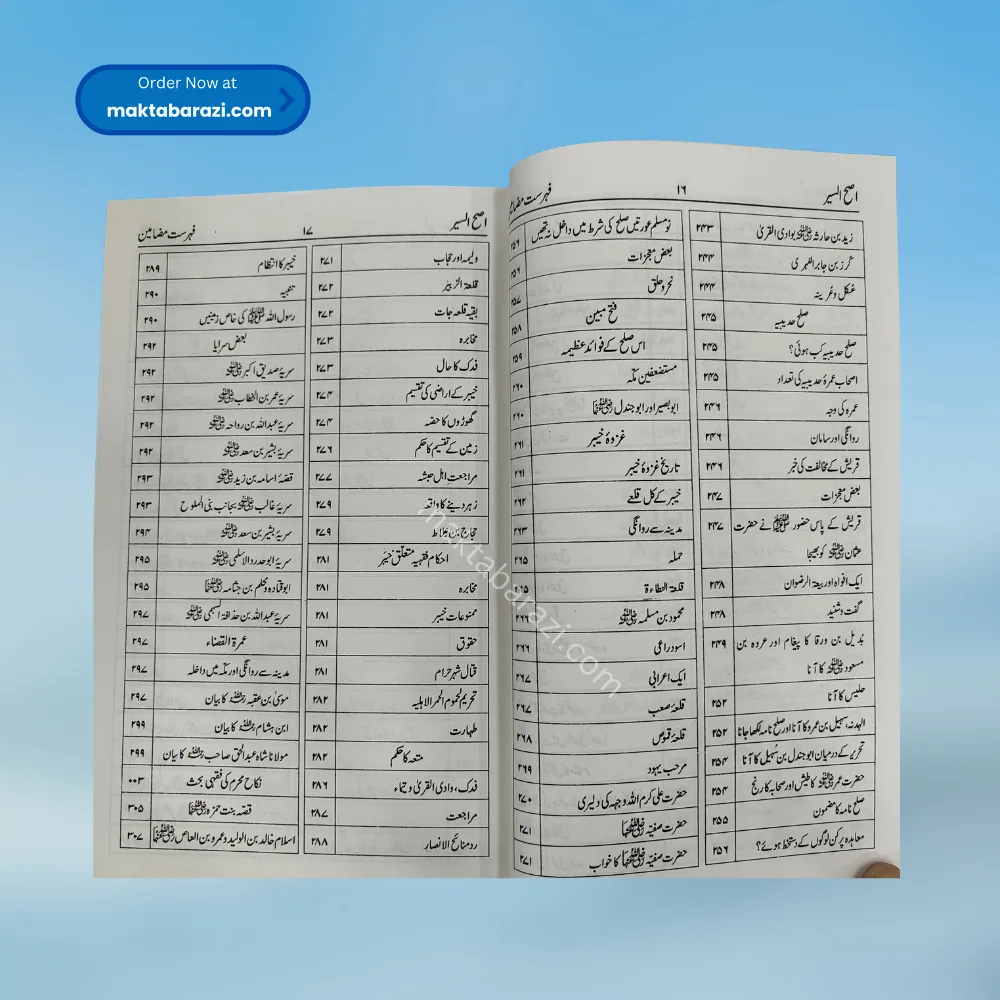 Order Now at
maktabarazi.com
اصح السیر
۱۶
فہرست مضامین
زید بن حارثہ رضی اللہ عنہ بوادی القریٰ ۲۴۳
کرز بن جابر الفہری ۲۴۴
عُکل و عُرینہ ۲۴۴
صلح حدیبیہ ۲۴۵
صلح حدیبیہ کب ہوئی؟ ۲۴۵
اصحاب عمرۂ حدیبیہ کی تعداد ۲۴۵
عمرہ کی وجہ ۲۴۶
روانگی اور سامان ۲۴۶
قریش کے مخالفت کی خبر ۲۴۶
بعض معجزات ۲۴۷
قریش کے پاس حضور ﷺ نے حضرت ۲۴۷
عثمان رضی اللہ عنہ کو بھیجا
ایک افواہ اور بیعۃ الرضوان ۲۴۸
گفت و شنید ۲۴۸
بُدیل بن ورقا کا پیغام اور عروہ بن ۲۴۹
مسعود رضی اللہ عنہ کا آنا
حلیس کا آنا ۲۵۲
الہدنہ، سہیل بن عمرو کا آنا اور صلح نامہ لکھا جانا ۲۵۲
تحریر کے درمیان ابو جندل بن سُہیل کا آنا ۲۵۴
حضرت عمر رضی اللہ عنہ کا طیش اور صحابہ کا رنج ۲۵۴
صلح نامہ کا مضمون ۲۵۵
معاہدہ پر کن لوگوں کے دستخط ہوئے؟ ۲۵۶
نو مسلم عورتیں صلح کی شرط میں داخل نہ تھیں ۲۵۶
بعض معجزات ۲۵۶
نحر و حلق ۲۵۷
فتح مبین ۲۵۸
اس صلح کے فوائد عظیمہ ۲۵۹
مستضعفین مکّہ ۲۶۰
ابو بصیر اور ابو جندل رضی اللہ عنہما ۲۶۰
غزوۂ خیبر ۲۶۱
تاریخ غزوۂ خیبر ۲۶۱
خیبر کے کل قلعے ۲۶۲
مدینہ سے روانگی ۲۶۳
حملہ ۲۶۵
قلعۃ النطاءۃ ۲۶۵
محمود بن مسلمہ رضی اللہ عنہ ۲۶۶
اسود راعی ۲۶۶
ایک اعرابی ۲۶۷
قلعۂ صعب ۲۶۷
قلعۂ قموص ۲۶۸
مرحب یہود ۲۶۹
حضرت علی کرم اللہ وجہہ کی دلیری ۲۷۰
حضرت صفیّہ رضی اللہ عنہا ۲۷۱
حضرت صفیّہ رضی اللہ عنہا کا خواب ۲۷۱
اصح السیر
۱۷
فہرست مضامین
ولیمہ اور حجاب ۲۷۱
قلعۃ الزبیر ۲۷۲
بقیہ قلعہ جات ۲۷۲
مخابرہ ۲۷۳
فدک کا حال ۲۷۳
خیبر کے اراضی کی تقسیم ۲۷۴
گھوڑوں کا حصہ ۲۷۴
زمین کے تقسیم کا حکم ۲۷۶
مراجعت اہل حبشہ ۲۷۷
زہر دینے کا واقعہ ۲۷۹
حجاج بن علاط ۲۷۹
احکام فقہیہ متعلق خیبر ۲۸۱
مخابرہ ۲۸۱
ممنوعات خیبر ۲۸۱
حقوق ۲۸۱
قتال شہر حرام ۲۸۱
تحریم لحوم الحمر الاہلیہ ۲۸۲
طہارت ۲۸۲
متعہ کا حکم ۲۸۲
فدک، وادی القریٰ و تیماء ۲۸۶
مراجعت ۲۸۷
رد منائح الانصار ۲۸۸
خیبر کا انتظام ۲۸۹
تنبیہ ۲۹۰
رسول اللہ ﷺ کی خاص زمینیں ۲۹۰
بعض سرایا ۲۹۲
سریۂ صدیق اکبر رضی اللہ عنہ ۲۹۲
سریۂ عمر بن الخطاب رضی اللہ عنہ ۲۹۲
سریۂ عبداللہ بن رواحہ رضی اللہ عنہ ۲۹۲
سریۂ بشیر بن سعد رضی اللہ عنہ ۲۹۲
قصّۂ اسامہ بن زید رضی اللہ عنہ ۲۹۳
سریۂ غالب رضی اللہ عنہ بجانب بنی الملوح ۲۹۳
سریۂ بشیر بن سعد رضی اللہ عنہ ۲۹۴
سریۂ ابو حدرد الاسلمی رضی اللہ عنہ ۲۹۵
ابو قتادہ و محلم بن جثامہ رضی اللہ عنہما ۲۹۵
سریۂ عبداللہ بن حذافۃ السہمی رضی اللہ عنہ ۲۹۷
عمرۃ القضاء ۲۹۷
مدینہ سے روانگی اور مکّہ میں داخلہ ۲۹۷
موسیٰ بن عقبہ رحمہ اللہ کا بیان ۲۹۷
ابن ہشام رحمہ اللہ کا بیان ۲۹۹
مولانا شاہ عبدالحق صاحب رحمہ اللہ کا بیان ۲۹۹
نکاح محرم کی فقہی بحث ۰۰۳
قصّہ بنت حمزہ رضی اللہ عنہا ۳۰۵
اسلام خالد بن الولید و عمرو بن العاص رضی اللہ عنہما ۳۰۷
maktabarazi.com